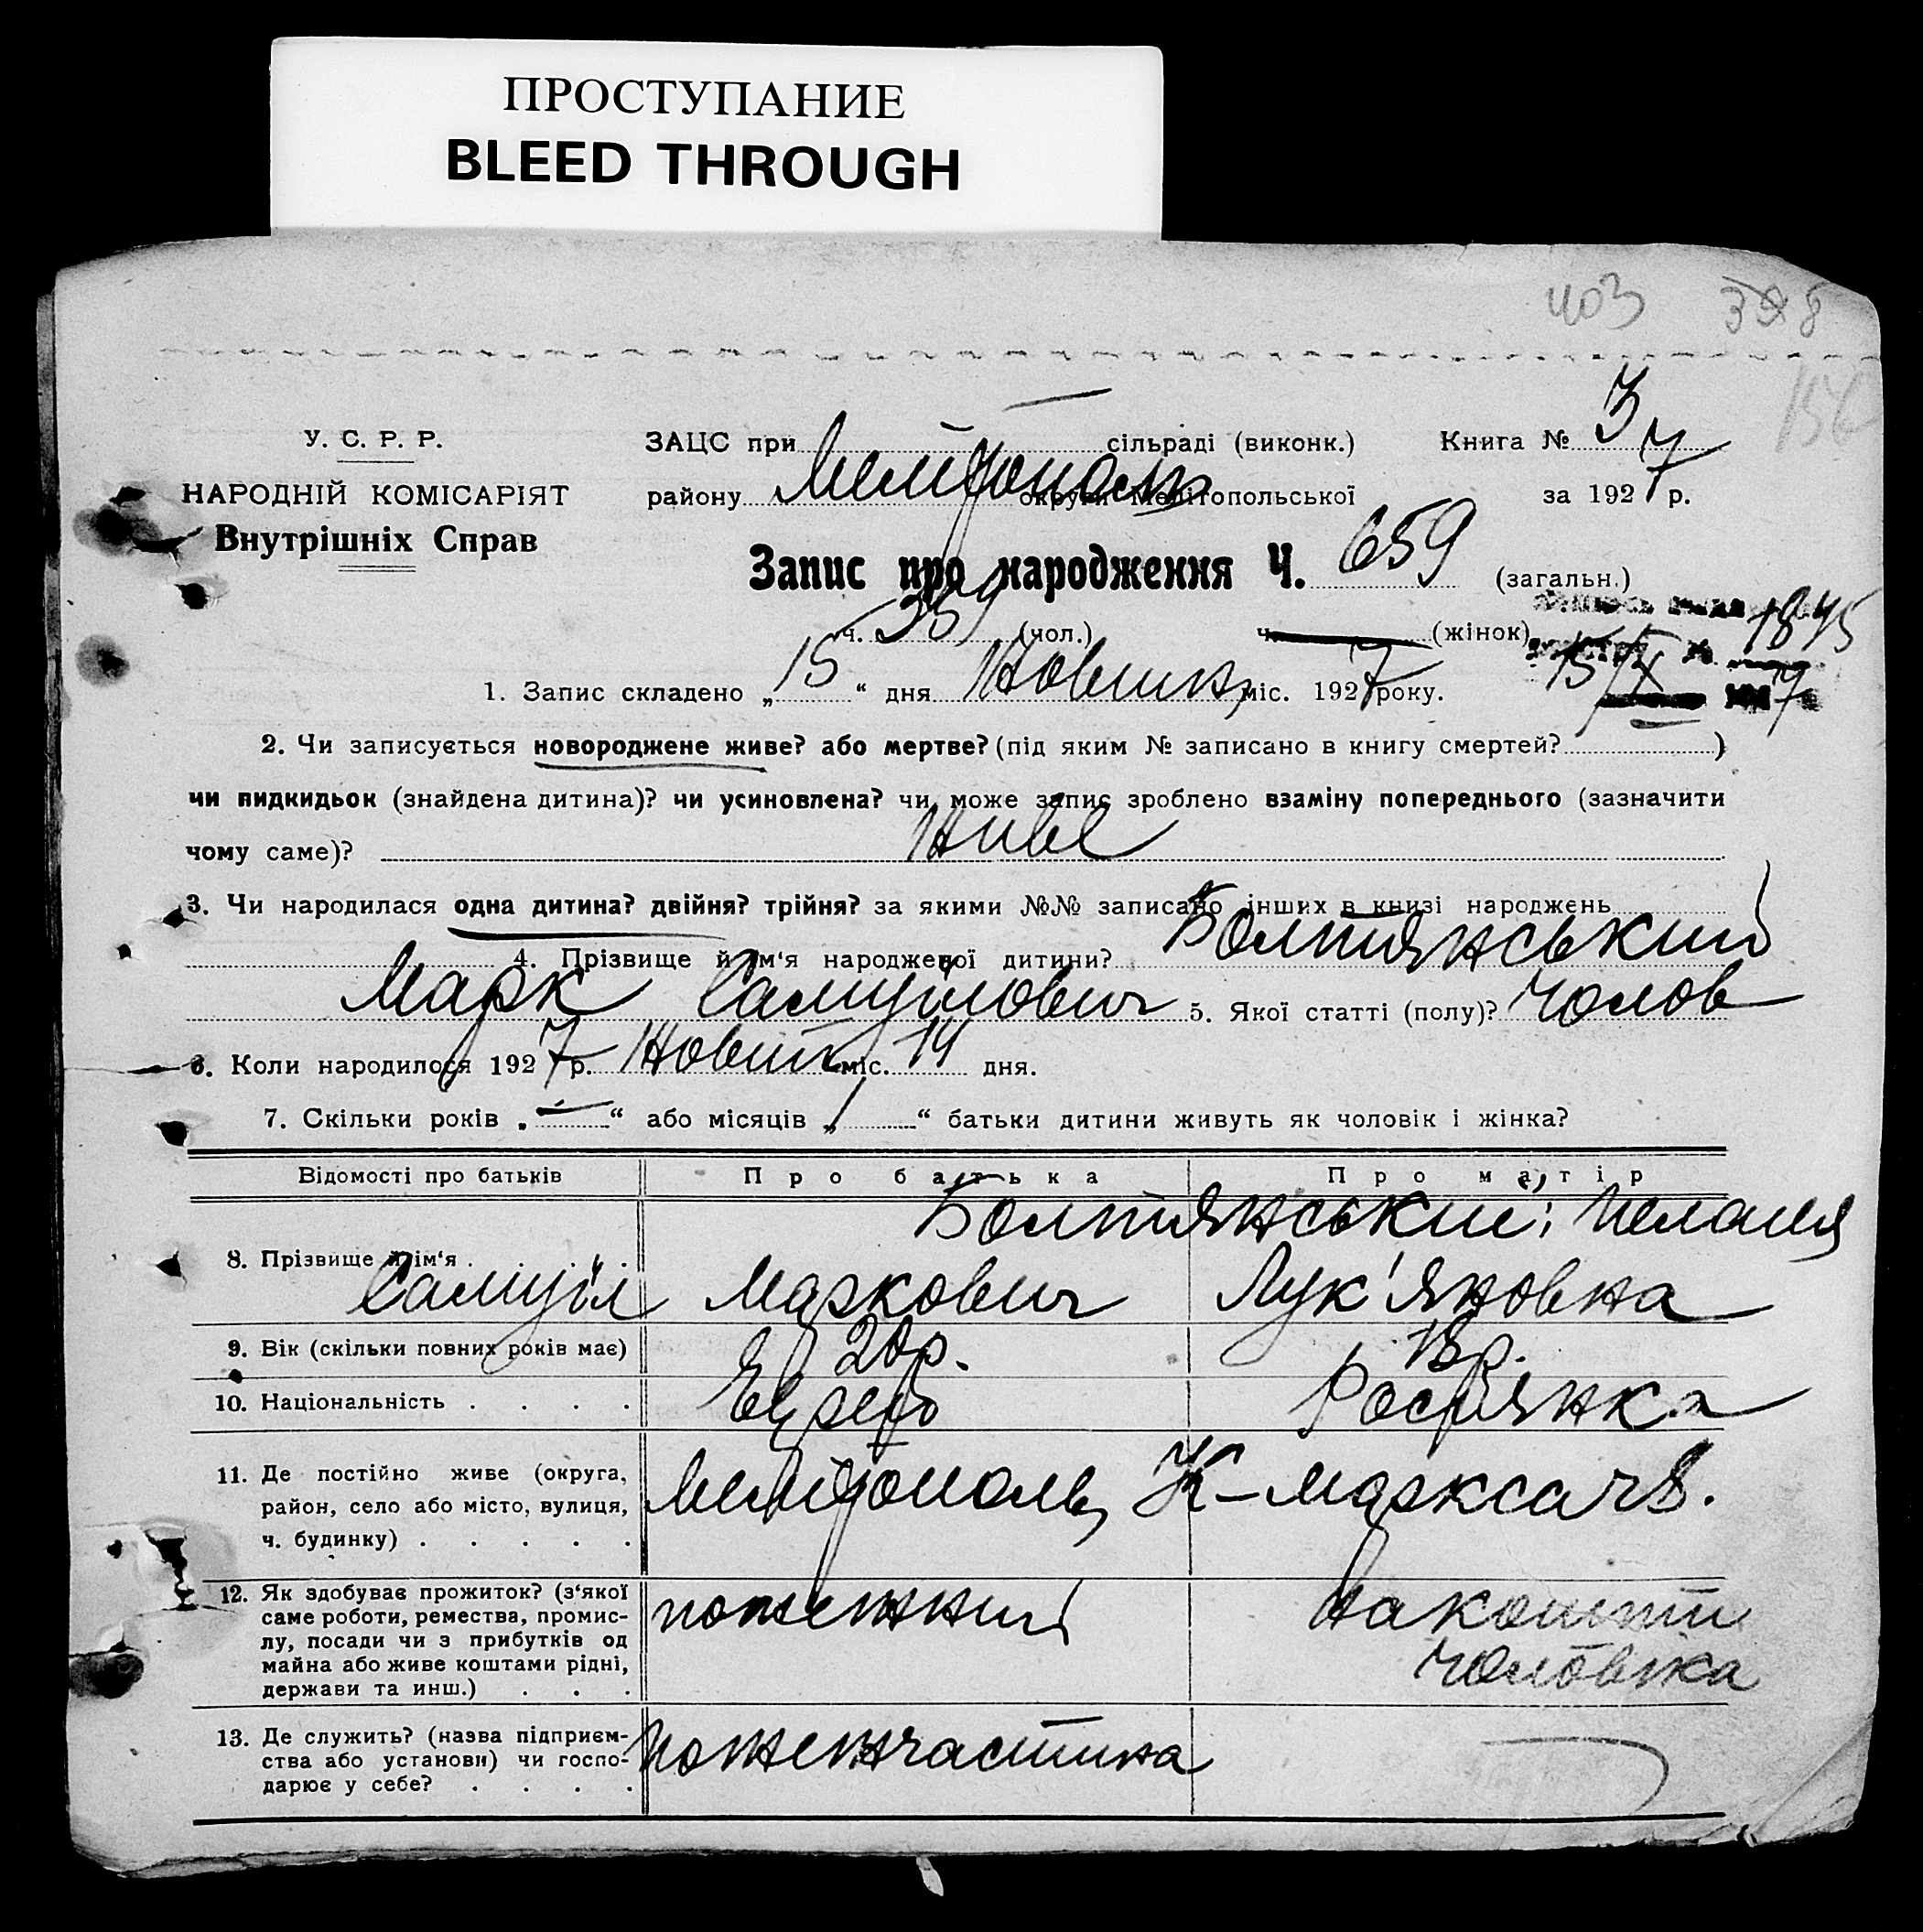 ПРОСТУПАНИЕ
BLEED THROUGH
403 398
156
У. С. Р. Р.
НАРОДНІЙ КОМІСАРІЯТ
Внутрішніх Справ
ЗАЦС при сільраді (виконк.) Книга № 3
району Мелітополь округи Мелітопольської за 1927 р.
Запис про народження Ч. 659 (загальн.)
ч. 359 (чол.) ч. (жінок)
1845
15/IX 7
1. Запис складено „15“ дня Жовтня міс. 1927 року.
2. Чи записується новороджене живе? або мертве? (під яким № записано в книгу смертей? )
чи пидкидьок (знайдена дитина)? чи усиновлена? чи може запис зроблено взаміну попереднього (зазначити
чому саме)? живе
3. Чи народилася одна дитина? двійня? трійня? за якими №№ записано інших в книзі народжень
4. Прізвище й ім‘я народженої дитини? Болтянський
Марк Самуїлович 5. Якої статті (полу)? чолов
6. Коли народилося 1927 р. Жовтня міс. 14 дня.
7. Скільки років „ — “ або місяців „ “ батьки дитини живуть як чоловік і жінка?
Відомості про батьків Про батька Про матір
8. Прізвище й ім‘я . . . . Болтянські; Мелания
Самуїл Маркович Лук'яновна
9. Вік (скільки повних років має) 20 р. 18 р.
10. Національність . . . . Еврей Росіянка
11. Де постійно живе (округа,
район, село або місто, вулиця,
ч. будинку) . . . . .
Мелітополь, К-Маркса ч 8.
12. Як здобуває прожиток? (з‘якої
саме роботи, ремества, промис-
лу, посади чи з прибутків од
майна або живе коштами рідні,
держави та инш.) . . .
пожежний
На кошти
чоловіка
13. Де служить? (назва підприєм-
ства або установи) чи госпо-
дарює у себе? . . . .
пожежчастина